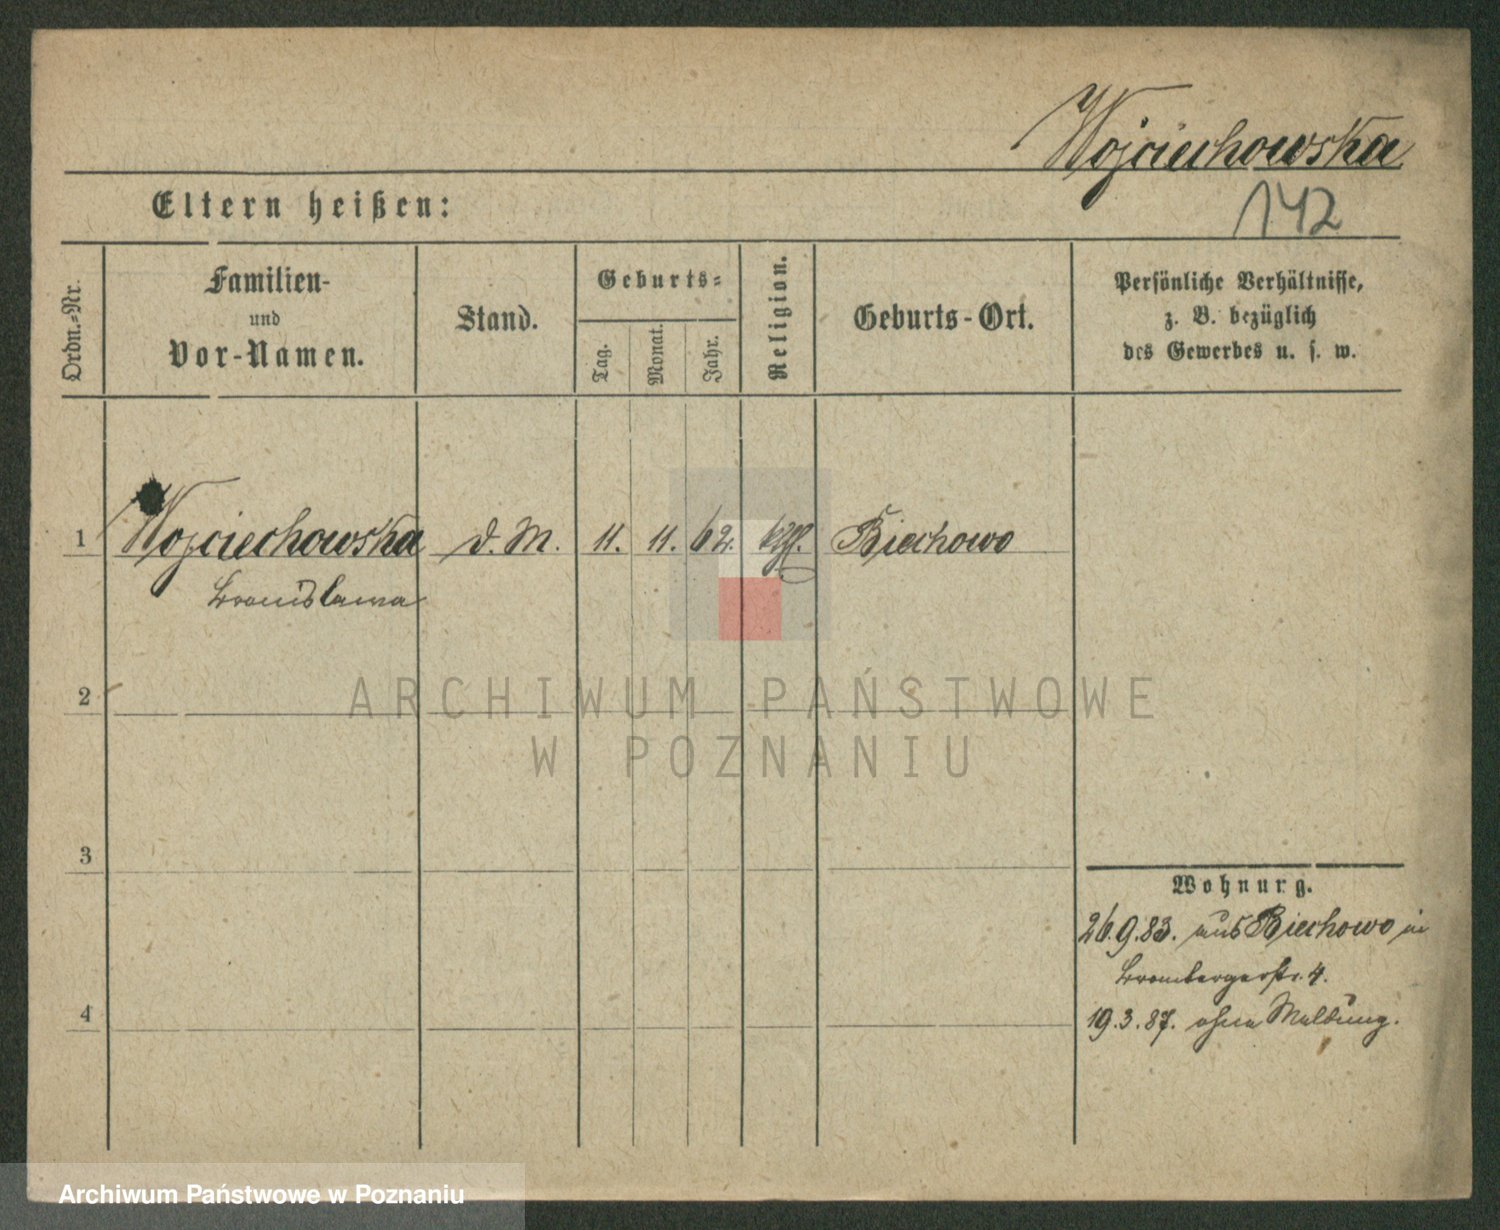 Wojciechowska
142
Eltern heißen:
Ordn.-Nr.
Familien-
und
Vor-Namen.
Stand.
Geburts-
Tag.
Monat.
Jahr.
Religion.
Geburts-Ort.
Persönliche Verhältnisse,
z. B. bezüglich
des Gewerbes u. s. w.
1 Wojciechowska d. M. 11. 11. 62. kth. Biechowo
Bronislawa
2
3
4
Wohnung.
26.9.83. aus Biechowo in
Brombergerstr. 4.
19.3.87. ohne Meldung.
ARCHIWUM PAŃSTWOWE
W POZNANIU
Archiwum Państwowe w Poznaniu